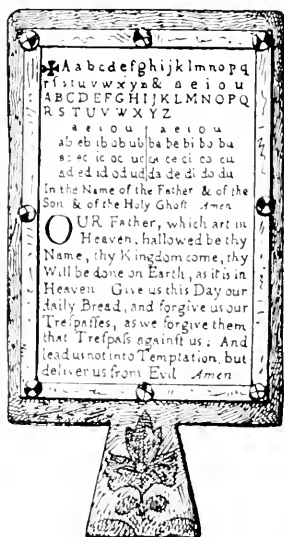 ✠Aabcdefghijklmnopq
rſstuvwxyz& aeiou
ABCDEFGHIJKLMNOPQ
RSTUVWXYZ
a e i o u | a e i o u
ab eb ib ob ub | ba be bi bo bu
ac ec ic oc uc | ca ce ci co cu
ad ed id od ud | da de di do du
In the Name of the Father & of the
Son & of the Holy Ghoſt Amen
OUR Father, which art in
Heaven, hallowed be thy
Name, thy Kingdom come, thy
Will be done on Earth, as it is in
Heaven Give us this Day our
daily Bread, and forgive us our
Treſpaſſes, as we forgive them
that Treſpaſs againſt us: And
lead us not into Temptation, but
deliver us from Evil Amen